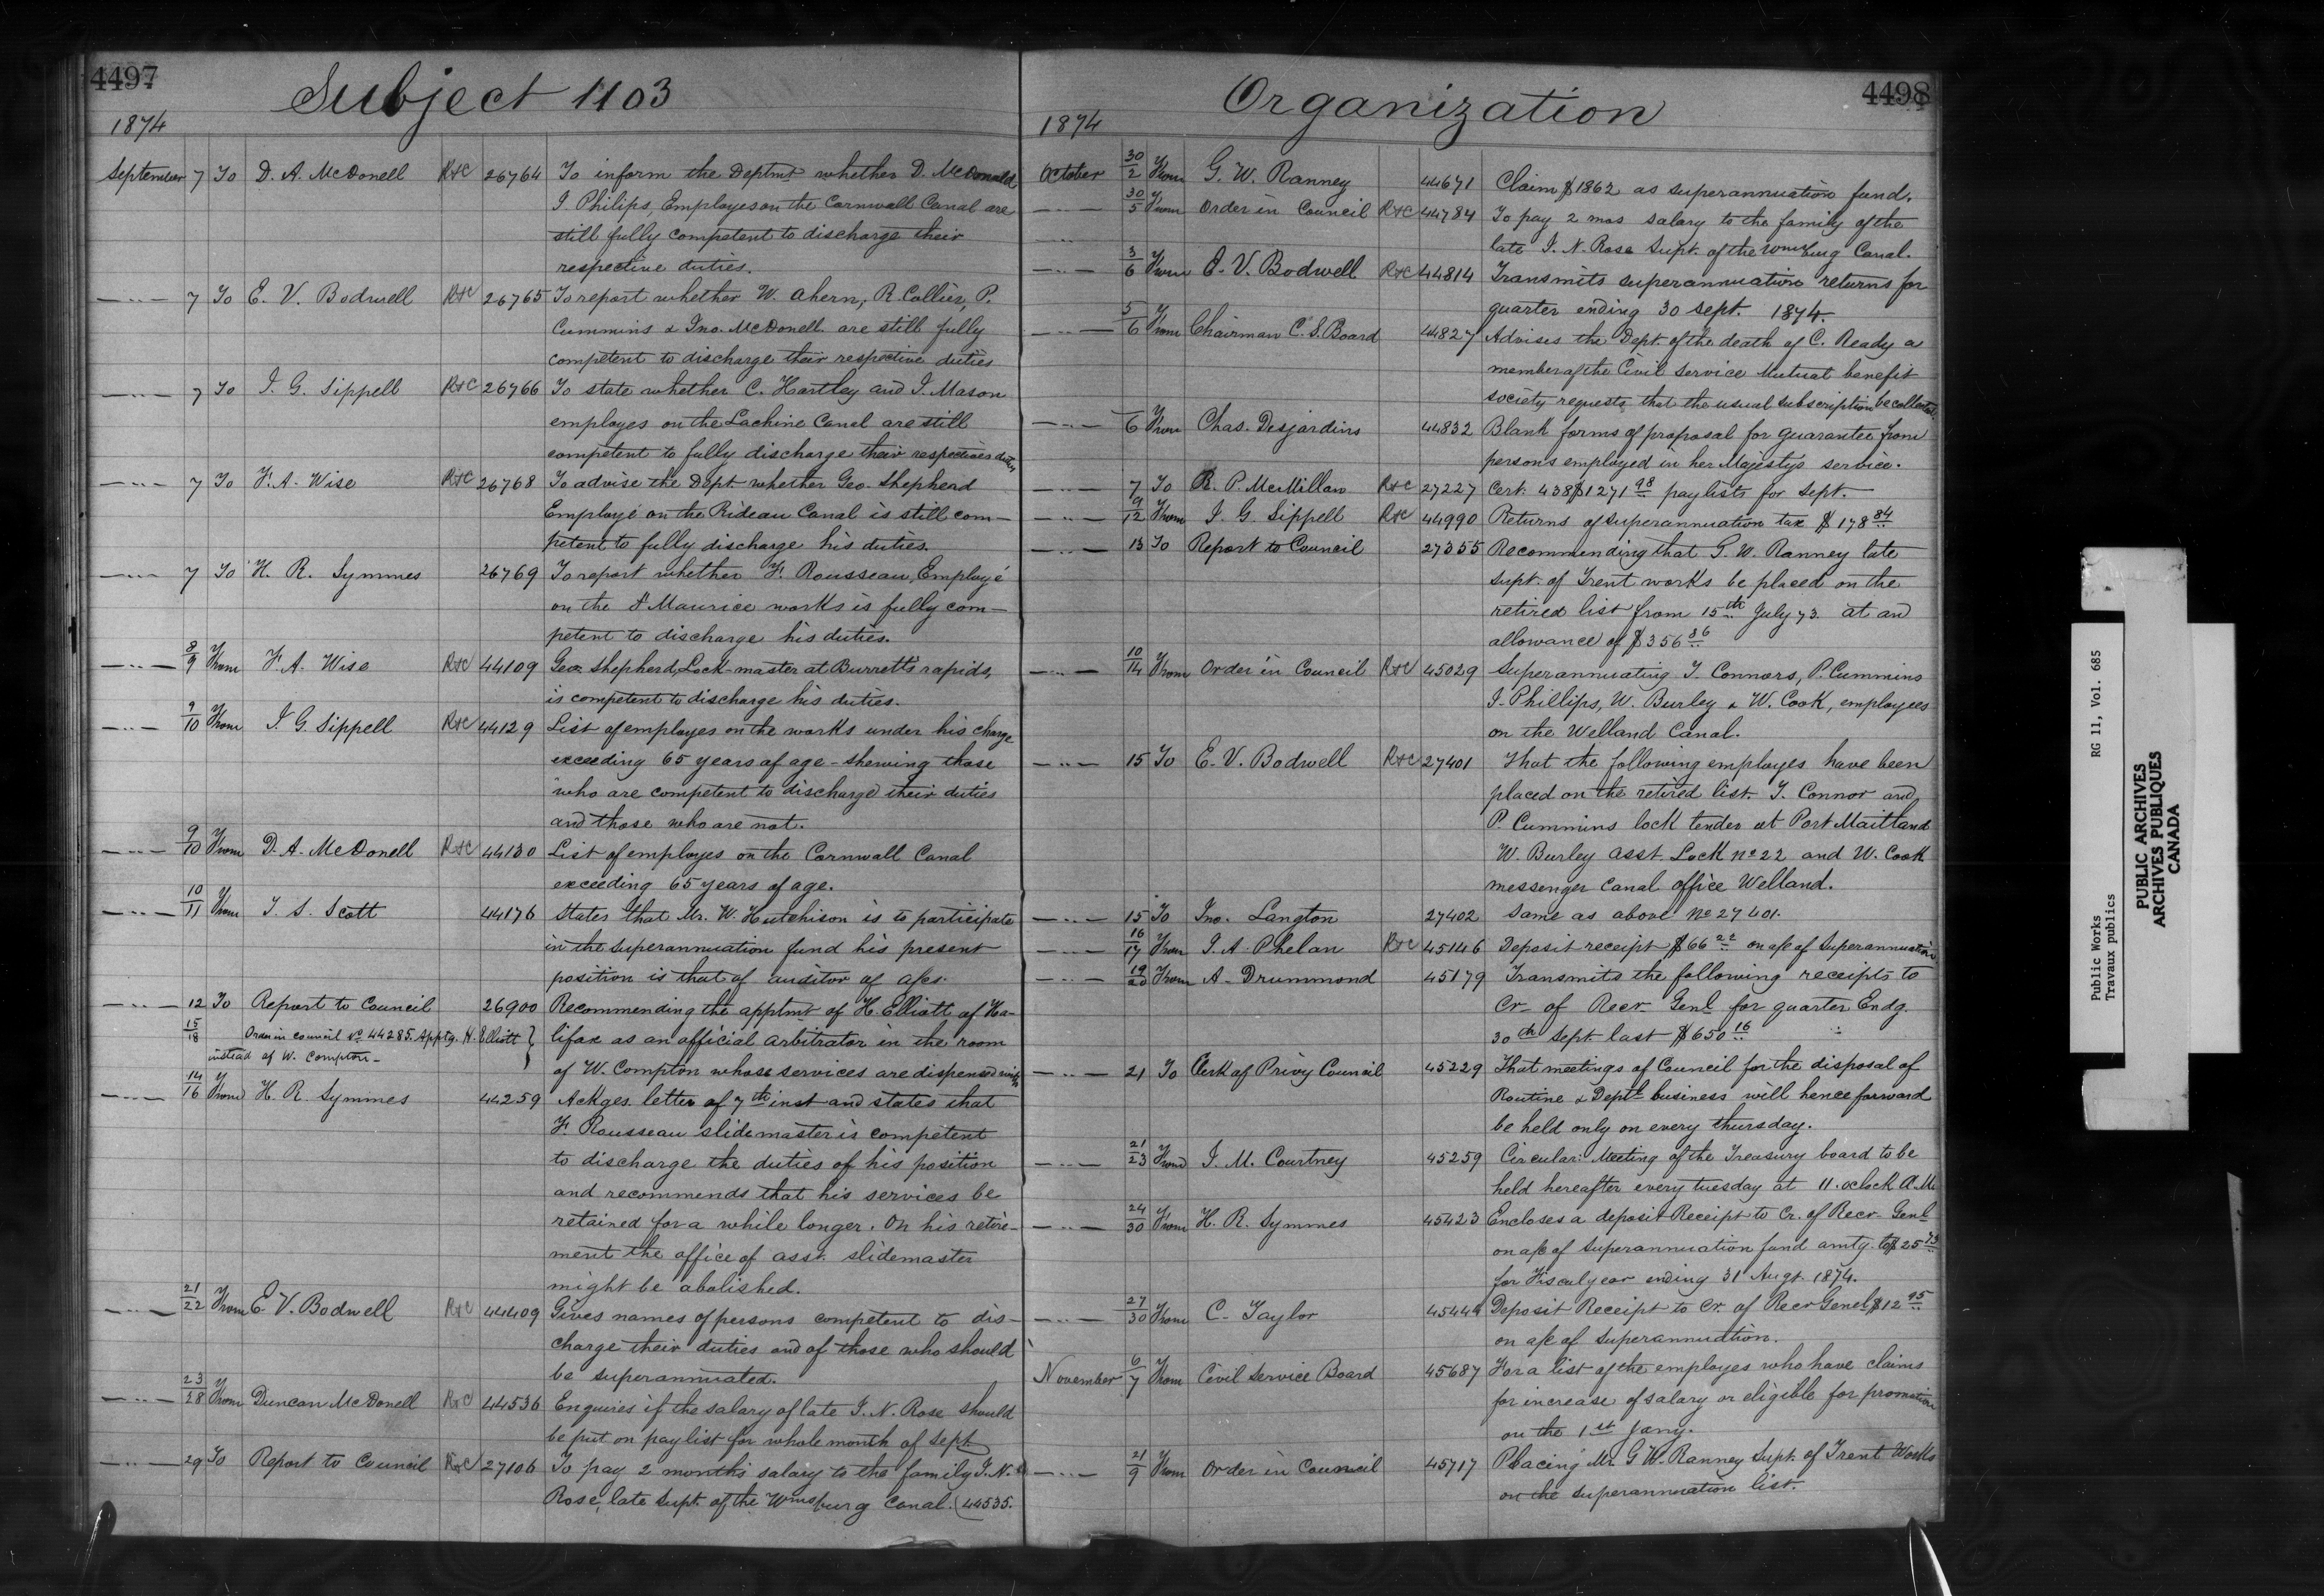 4497
Subject 1103
1874
September 7 To D. A. McDonell R&C 26764 To inform the Deptmt whether D. McDonald
J. Philips, Employes on the Cornwall Canal are
still fully competent to discharge their
respective duties.
—..— 7 To E. V. Bodwell R&C 26765 To report whether W. Ahern, R. Collier, P.
Cummins & Jno. McDonell are still fully
competent to discharge their respective duties
—..— 7 To J. G. Sippell R&C 26766 To state whether C. Hartley and J. Mason
employes on the Lachine Canal are still
competent to fully discharge their respectives duties
—..— 7 To F. A. Wise R&C 26768 To advise the Dept whether Geo. Shepherd
Employé on the Rideau Canal is still com-
petent to fully discharge his duties.
—..— 7 To H. R. Symmes 26769 To report whether F. Rousseau, Employé
on the St Maurice works is fully com-
petent to discharge his duties.
—..— 8/9 From F. A. Wise R&C 44109 Geo. Shepherd, Lock-master at Burretts rapids,
is competent to discharge his duties.
—..— 9/10 From J. G. Sippell R&C 44129 List of employes on the works under his charge
exceeding 65 years of age - shewing those
who are competent to discharge their duties
and those who are not.
—..— 9/10 From D. A. McDonell R&C 44130 List of employes on the Cornwall Canal
exceeding 65 years of age.
—..— 10/11 From T. S. Scott 44176 States that Mr. W. Hutchison is to participate
in the superannuation fund his present
position is that of auditor of a/cs.
—..— 12 To Report to Council 26900 Recommending the apptmt of H. Elliott of Ha-
15/18 Order in council No 44285. Apptg. H. Elliott } lifax as an official arbitrator in the room
instead of W. Compton -
of W. Compton whose services are dispensed with
—..— 14/16 From H. R. Symmes 44259 Ackges. letter of 7th inst and states that
F. Rousseau slidemaster is competent
to discharge the duties of his position
and recommends that his services be
retained for a while longer. On his retire-
ment the office of asst. slidemaster
might be abolished.
—..— 21/22 From E V. Bodwell R&C 44409 Gives names of persons competent to dis-
charge their duties and of those who should
be superannuated.
—..— 23/28 From Duncan McDonell R&C 44536 Enquires if the salary of late J. N. Rose should
be put on pay list for whole month of Sept.
—..— 29 To Report to Council R&C 27106 To pay 2 months salary to the family J. N.
Rose, late Supt. of the Wmsburg Canal. (44535.
4498
Organization
1874
October 30/2 From G. W. Ranney 44671 Claim $1862 as superannuation fund.
—..— 30/5 From Order in Council R&C 44784 To pay 2 mos salary to the family of the
—..— late J. N. Rose Supt. of the Wmsburg Canal.
—..— 3/6 From E. V. Bodwell R&C 44814 Transmits superannuation returns for
quarter ending 30 Sept. 1874.
—..— 5/6 From Chairman C. S. Board 44827 Advises the Dept. of the death of C. Ready a
member of the Civil Service Mutual benefit
society requests that the usual subscription be collected.
—..— 6 From Chas. Desjardins 44832 Blank forms of proposal for guarantee from
persons employed in her Majesty's service.
—..— 7 To R. P. McMillan R&C 27227 Cert. 438 $1271 98 paylists for Sept.
—..— 9/12 From J. G. Sippell R&C 44990 Returns of superannuation tax $178 84
—..— 13 To Report to Council 27355 Recommending that G. W. Ranney late
Supt. of Trent works be placed on the
retired list from 15th July 73. at an
allowance of $356 86
—..— 10/14 From Order in Council R&C 45029 Superannuating T. Connors, P. Cummins
J. Phillips, W. Burley & W. Cook, employees
on the Welland Canal.
—..— 15 To E. V. Bodwell R&C 27401 That the following employes have been
placed on the retired list. T. Connor and
P. Cummins lock tender at Port Maitland
W. Burley asst. Lock No 22 and W. Cook
messenger Canal office Welland.
—..— 15 To Jno. Langton 27402 Same as above No 27401.
—..— 16/17 From J. A. Phelan R&C 45146 Deposit receipt $66 22 on a/c of Superannuation
—..— 19/20 From A. Drummond 45179 Transmits the following receipts to
Cr. of Recr. Genl for quarter Endg.
30th Sept. last $650 16
—..— 21 To Clerk of Privy Council 45229 That meetings of Council for the disposal of
Routine & Deptl business will hence forward
be held only on every thursday.
—..— 21/23 From J. M. Courtney 45259 Circular: Meeting of the Treasury board to be
held hereafter every tuesday at 11. oclock A.M.
—..— 24/30 From H. R. Symmes 45423 Encloses a deposit Receipt to Cr. of Recr. Genl
on a/c of Superannuation fund amtg. to $25 73
for Fiscal year ending 31 Augt. 1874.
—..— 27/30 From C. Taylor 45449 Deposit Receipt to Cr. of Recr Genel $12 95
on a/c of superannuation.
November 6/7 From Civil Service Board 45687 For a list of the employes who have claims
for increase of salary or eligible for promotion
on the 1st Jany.
—..— 21/9 From Order in Council 45717 Placing Mr. G W. Ranney Supt. of Trent Works
on the superannuation list.
Public Works RG 11, Vol. 685
Travaux publics
PUBLIC ARCHIVES
ARCHIVES PUBLIQUES
CANADA